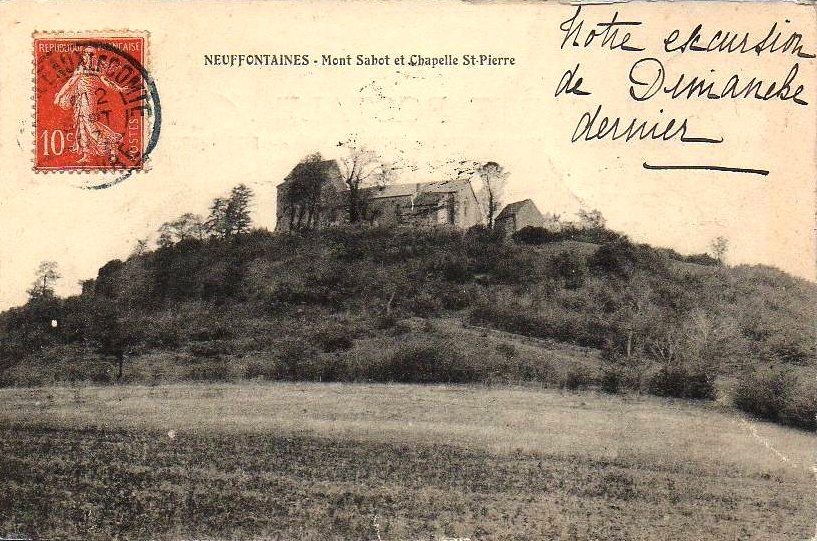 REPUBLIQUE FRANÇAISE
10c
POSTES
NEUFFONTAINES - Mont Sabot et Chapelle St-Pierre
Notre excursion
de Dimanche
dernier